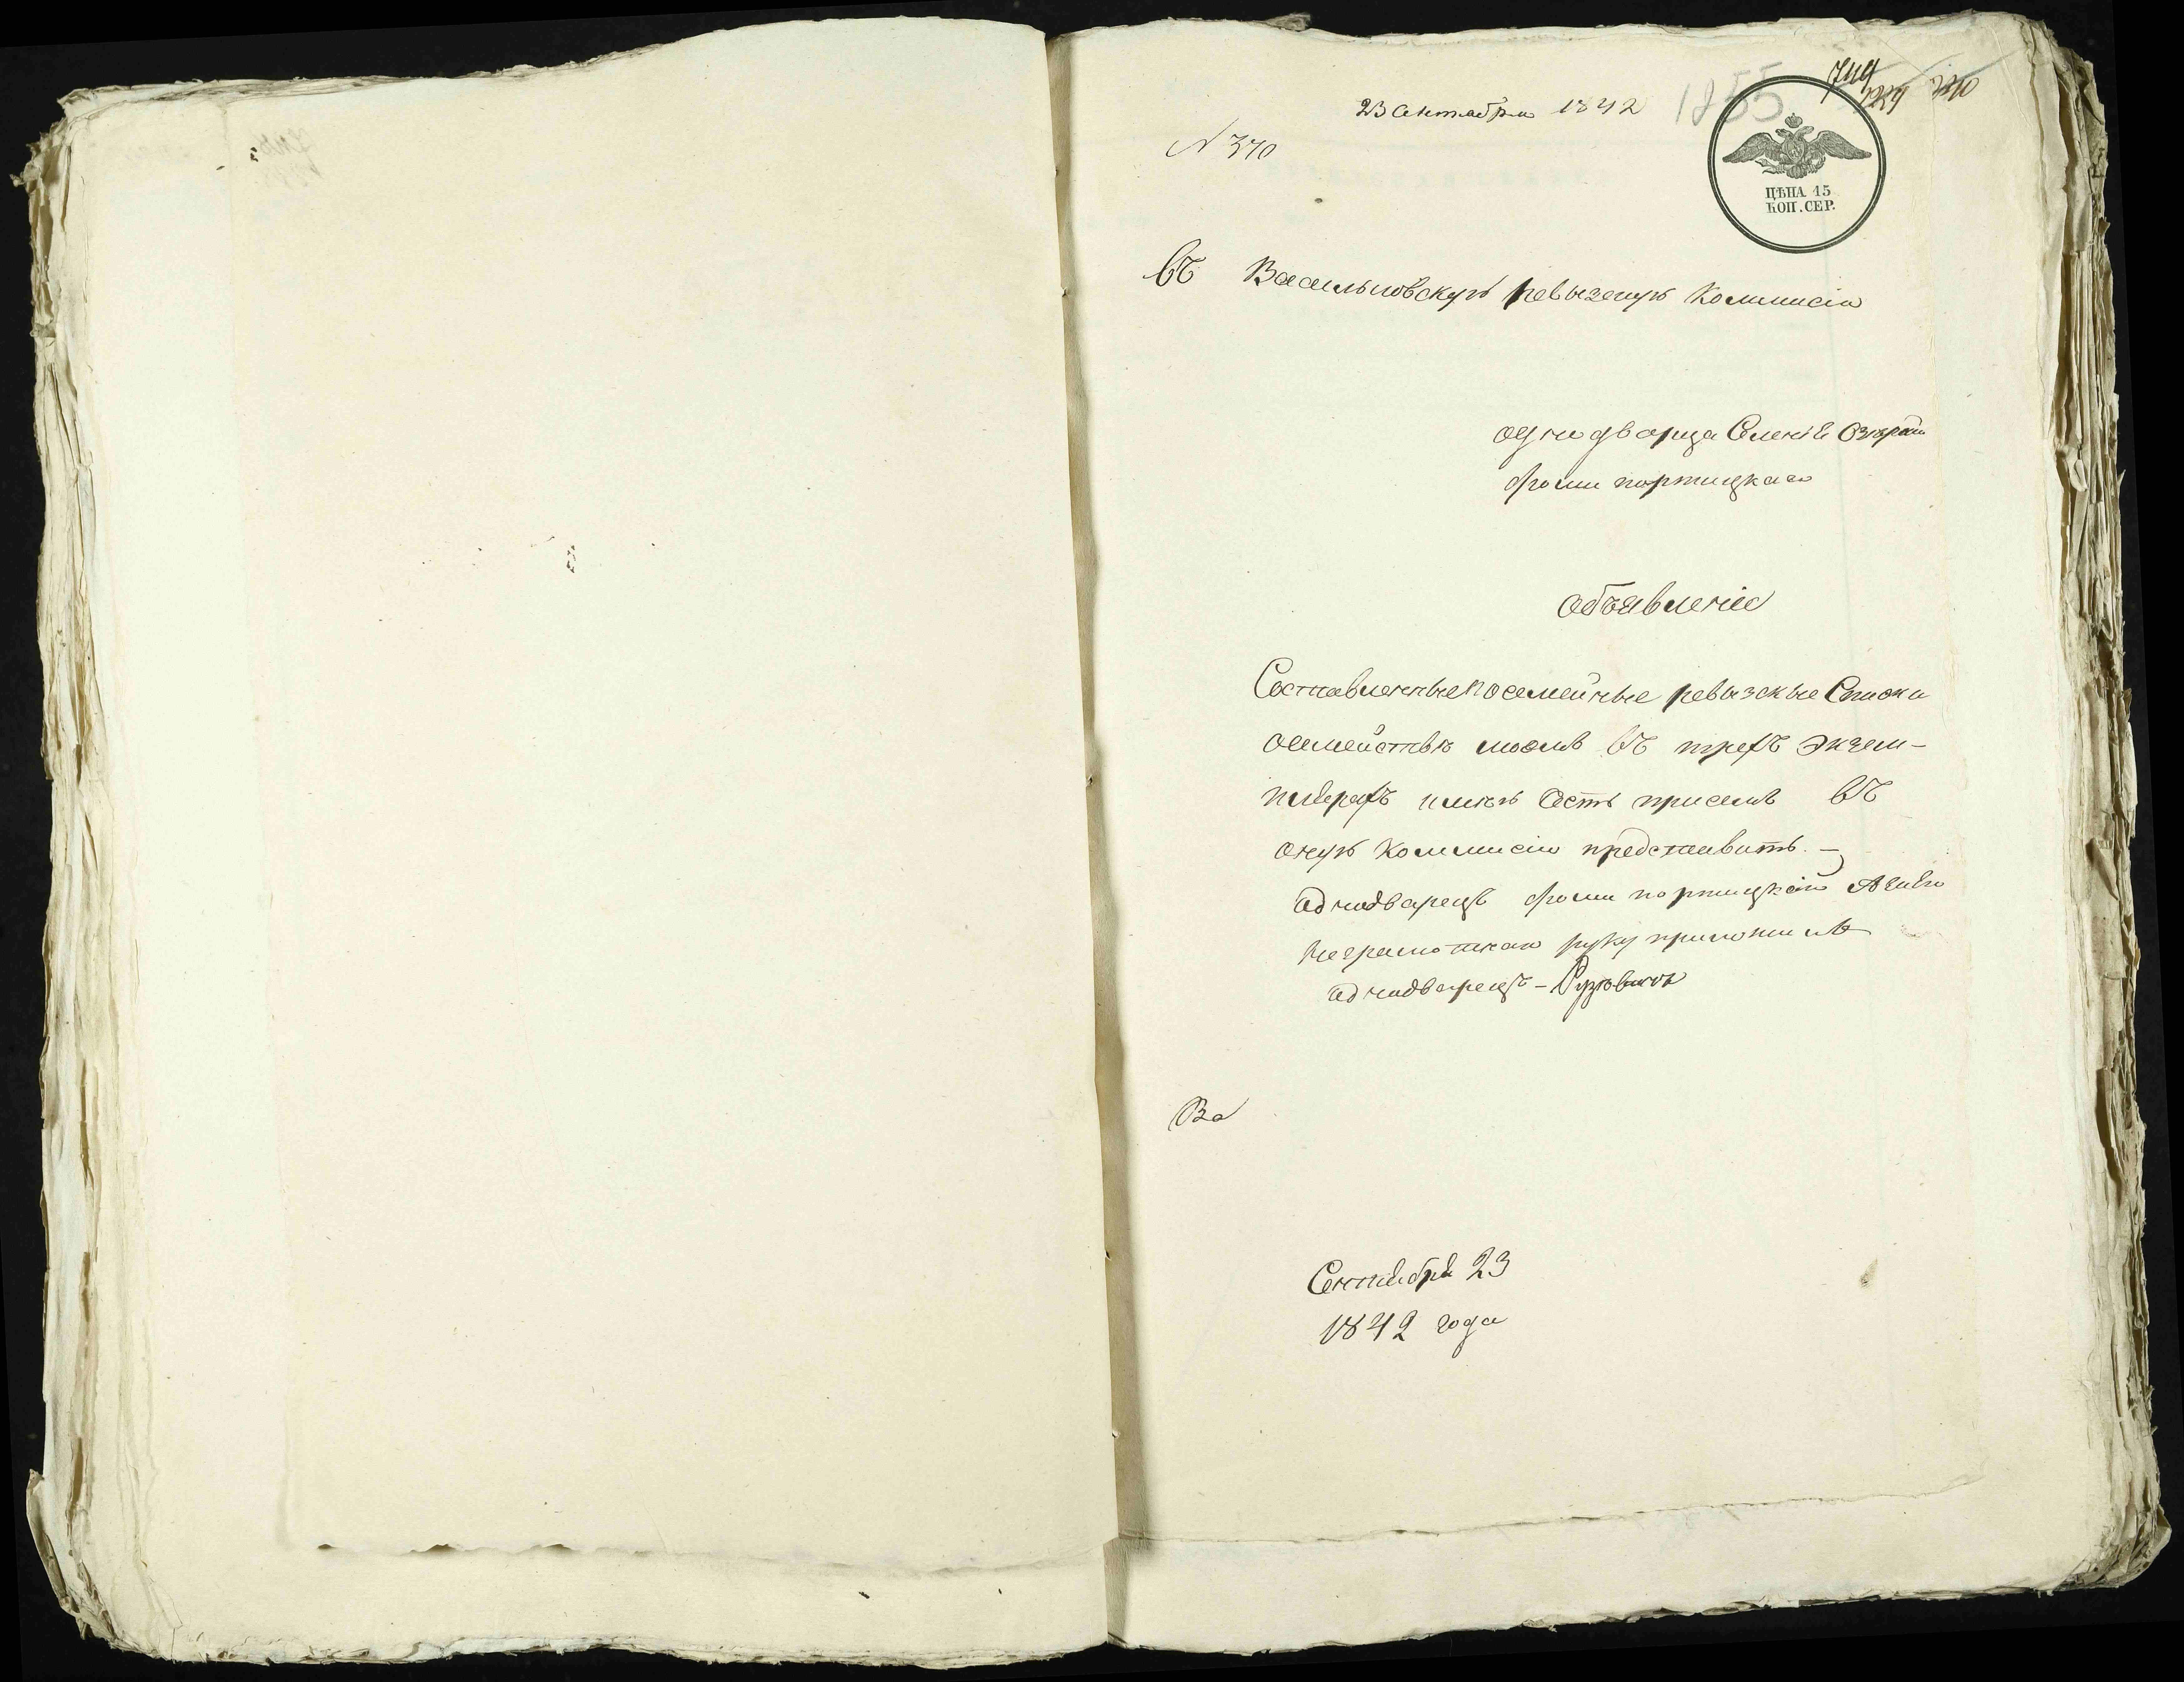 23 Сентабра 1842
1855
N 370
ЦѢНА 15
КОП. СЕР.
въ Васильковскую ревызкую Коммисію
однодворца
фомы портицкаго
объявленіе
Составленные посемейные ревызские Списки
Осемействѣ моемъ въ трехъ экзем-
плярахъ имею Честь присемъ въ
оную Коммисію представить. —
адмодварецъ фома портицкій Азанѣго
неграмотнаго руку приложилъ
адмодварецъ –
Сентября 23
1842 года